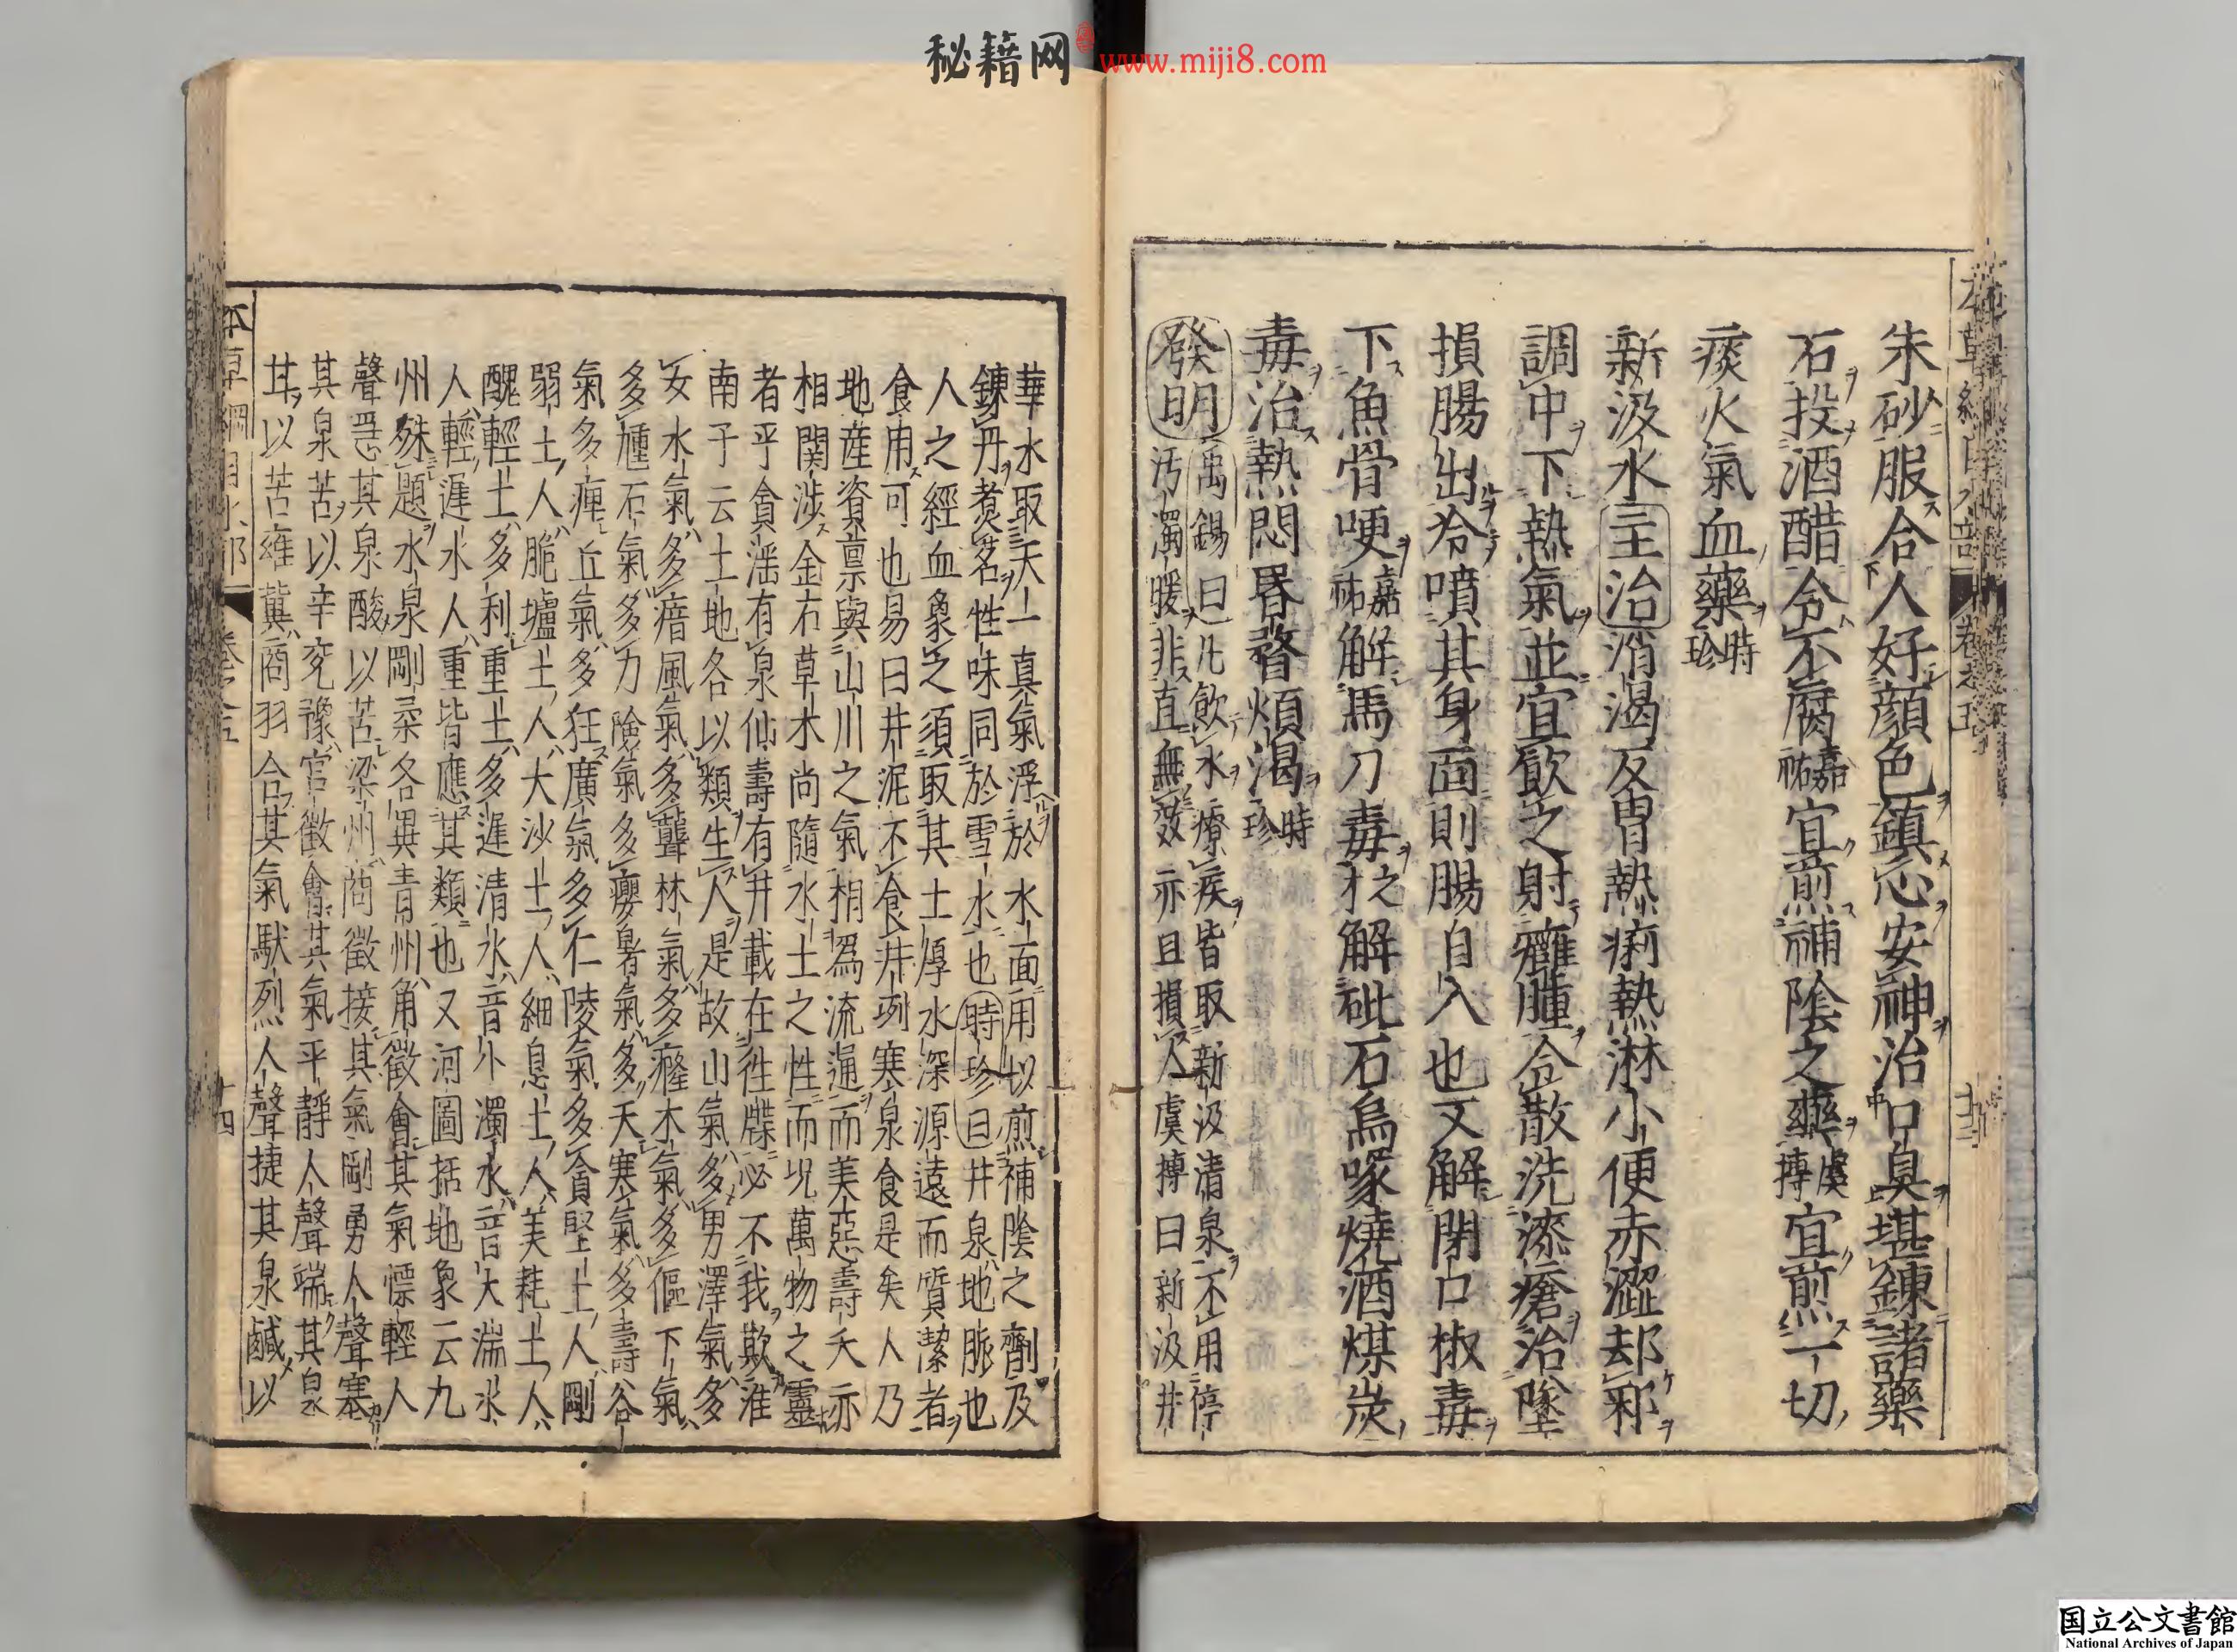 秘籍网 www.miji8.com
朱砂服合人好顔色鎮心安神治口臭堪錬諸藥
石投酒醋令不腐嘉祐宜煎補陰之藥虞摶宜煎一切
痰火氣血藥時珍
新汲水主治消渴反胃熱痢熱淋小便赤澀却邪
調中下熱氣並宜飲之射癰腫令散洗漆瘡治墜
損腸出冷噴其身面則腸自入也又解閉口椒毒
下魚骨哽嘉祐解馬刀毒之才解砒石烏喙燒酒煤炭
毒治熱悶昏瞀煩渴時珍
發明禹錫曰凡飲水療疾皆取新汲清泉不用停
汚濁暖非直無效亦且損人虞摶曰新汲井
華水取天一真氣浮於水面用以煎補陰之劑及
錬丹煮茗性味同於雪水也時珍曰井泉地脈也
人之經血象之須取其土厚水深源遠而質潔者
食用可也易曰井泥不食井冽寒泉食是矣人乃
地産資禀與山川之氣相爲流通而美惡壽夭亦
相關渉金石草木尚隨水土之性而况萬物之靈
者乎貪淫有泉仙壽有井載在徃牒必不我欺淮
南子云土地各以類生人是故山氣多男澤氣多
女水氣多瘖風氣多聾林氣多癃木氣多傴下氣
多尰石氣多力險氣多癭暑氣多夭寒氣多壽谷
氣多痺丘氣多狂廣氣多仁陵氣多貪堅土人剛
弱土人脆壚土人大沙土人細息土人美耗土人
醜輕土多利重土多遲清水音小濁水音大湍水
人輕遲水人重皆應其類也又河圖括地象云九
州殊題水泉剛柔各異青州角徵會其氣慓輕人
聲急其泉酸以苦梁州商徵接其氣剛勇人聲塞
其泉苦以辛兖豫宫徵會其氣平靜人聲端其泉
甘以苦雍冀商羽合其氣駃烈人聲捷其泉鹹以
本草綱目水部 卷之五 十四
国立公文書館
National Archives of Japan